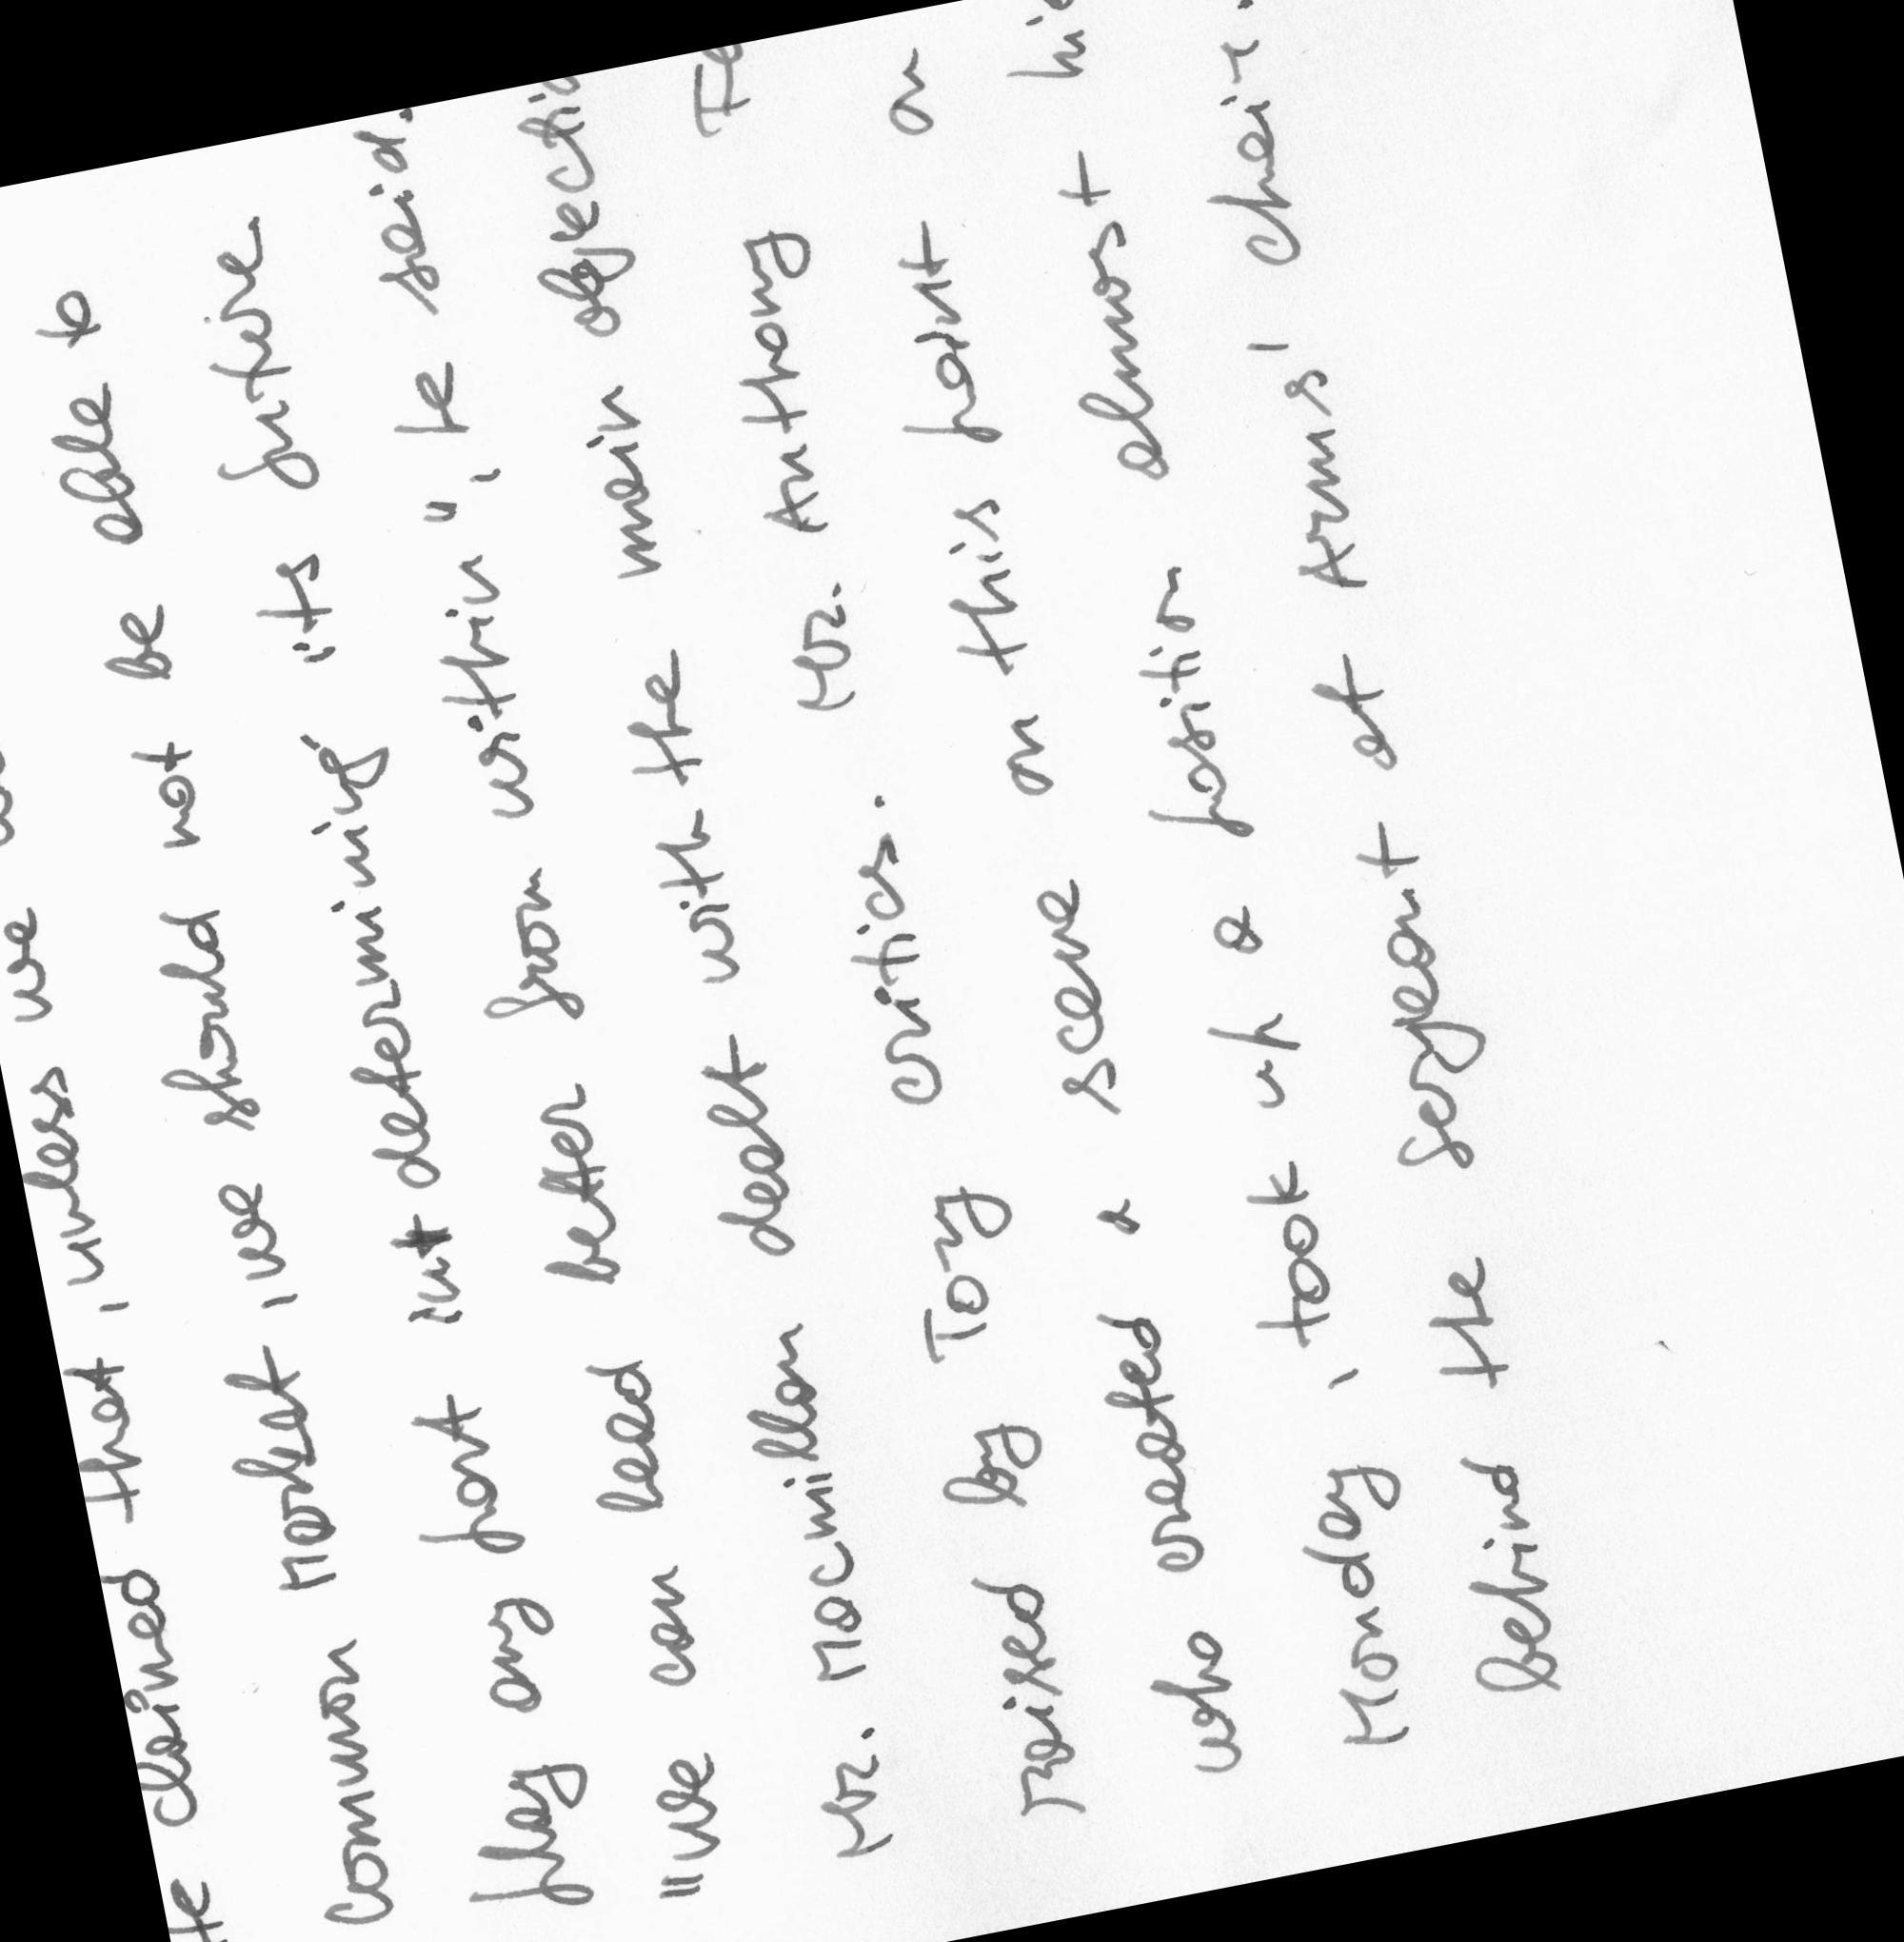 He claimed that, unless we
Common Market, we should not be able to
play any part in determining "its future.
"We can lead better from within", he said.
Mr. Macmillan dealt with the main
raised by Tory critics. Mr. Anthony
who created a scene on this point on
Monday, took up a position almost
behind the Sergeant at Arms' chair.